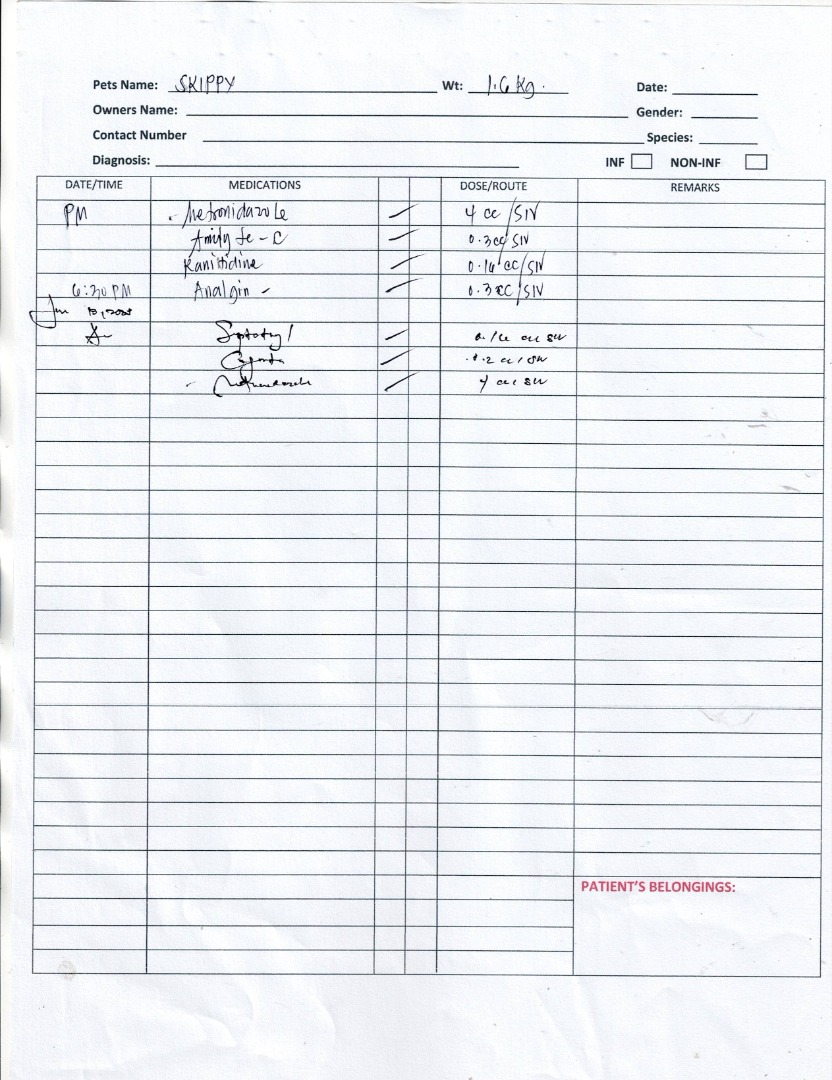 Pets Name: SKIPPY Wt: 1.6 Kg. Date:
Owners Name: Gender:
Contact Number Species:
Diagnosis: INF NON-INF
DATE/TIME MEDICATIONS DOSE/ROUTE REMARKS
PM . Metronidazole 4 cc / SIV
0.3cc/ SIV
Ranitidine 0.16 cc/ SIV
6:30 PM Analgin - 0.3 cc / SIV
Jun
- Metronidazole 4 cc / SIV
PATIENT'S BELONGINGS: